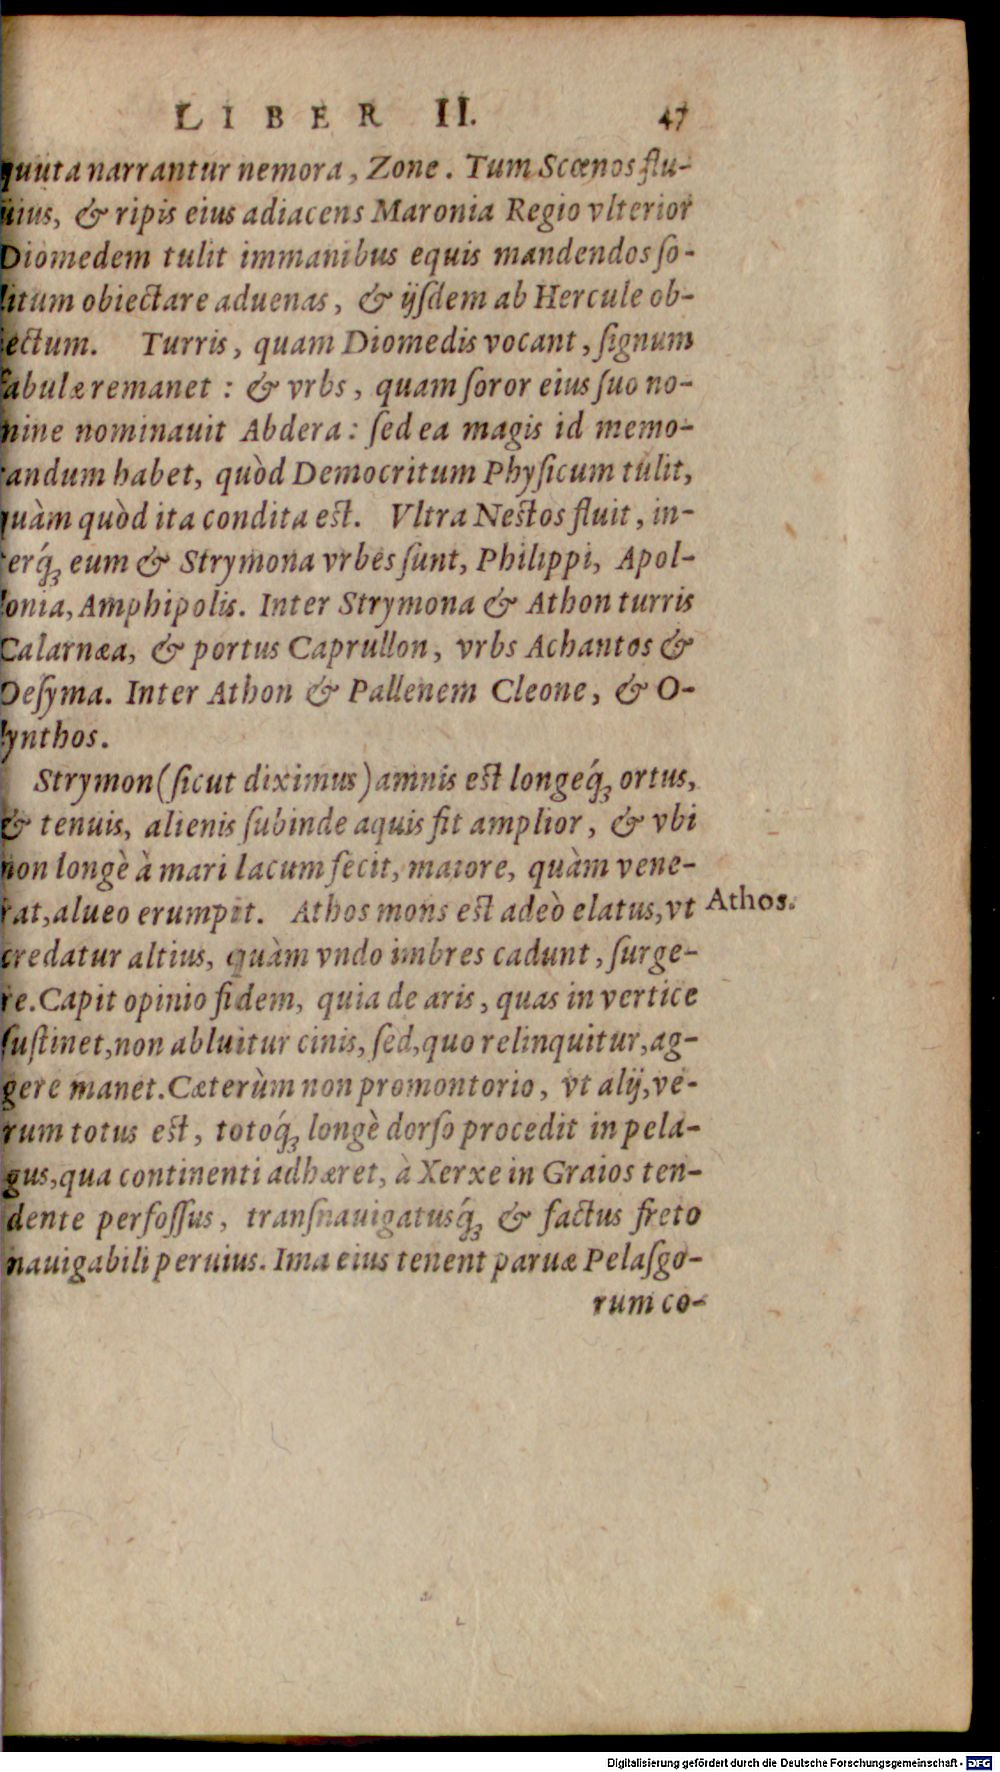 LIBER II. 47
quuta narrantur nemora, Zone. Tum Scœnos flu-
uius, & ripis eius adiacens Maronia Regio vlterior
Diomedem tulit immanibus equis mandendos ſo-
litum obiectare aduenas, & ijſdem ab Hercule ob-
iectum. Turris, quam Diomedis vocant, ſignum
fabulæ remanet : & vrbs, quam ſoror eius ſuo no-
mine nominauit Abdera: ſed ea magis id memo-
randum habet, quòd Democritum Phyſicum tulit,
quàm quòd ita condita est. Vltra Nestos fluit, in-
terq́ꝫ eum & Strymona vrbes ſunt, Philippi, Apol-
lonia, Amphipolis. Inter Strymona & Athon turris
Calarnæa, & portus Caprullon, vrbs Achantos &
Oeſyma. Inter Athon & Pallenem Cleone, & O-
lynthos.
Strymon (ſicut diximus) amnis est longeq́ꝫ ortus,
& tenuis, alienis ſubinde aquis fit amplior, & vbi
non longè à mari lacum fecit, maiore, quàm vene-
rat, alueo erumpit. Athos mons est adeò elatus, vt
Athos.
credatur altius, quàm vndo imbres cadunt, ſurge-
re. Capit opinio fidem, quia de aris, quas in vertice
ſuſtinet, non abluitur cinis, ſed, quo relinquitur, ag-
gere manet. Cæterùm non promontorio, vt alij, ve-
rum totus est, totoq́ꝫ longè dorſo procedit in pela-
gus, qua continenti adhæret, à Xerxe in Graios ten-
dente perfoſſus, tranſnauigatusq́ꝫ & factus freto
nauigabili peruius. Ima eius tenent paruæ Pelaſgo-
rum co-
Digitalisierung gefördert durch die Deutsche Forschungsgemeinschaft - DFG